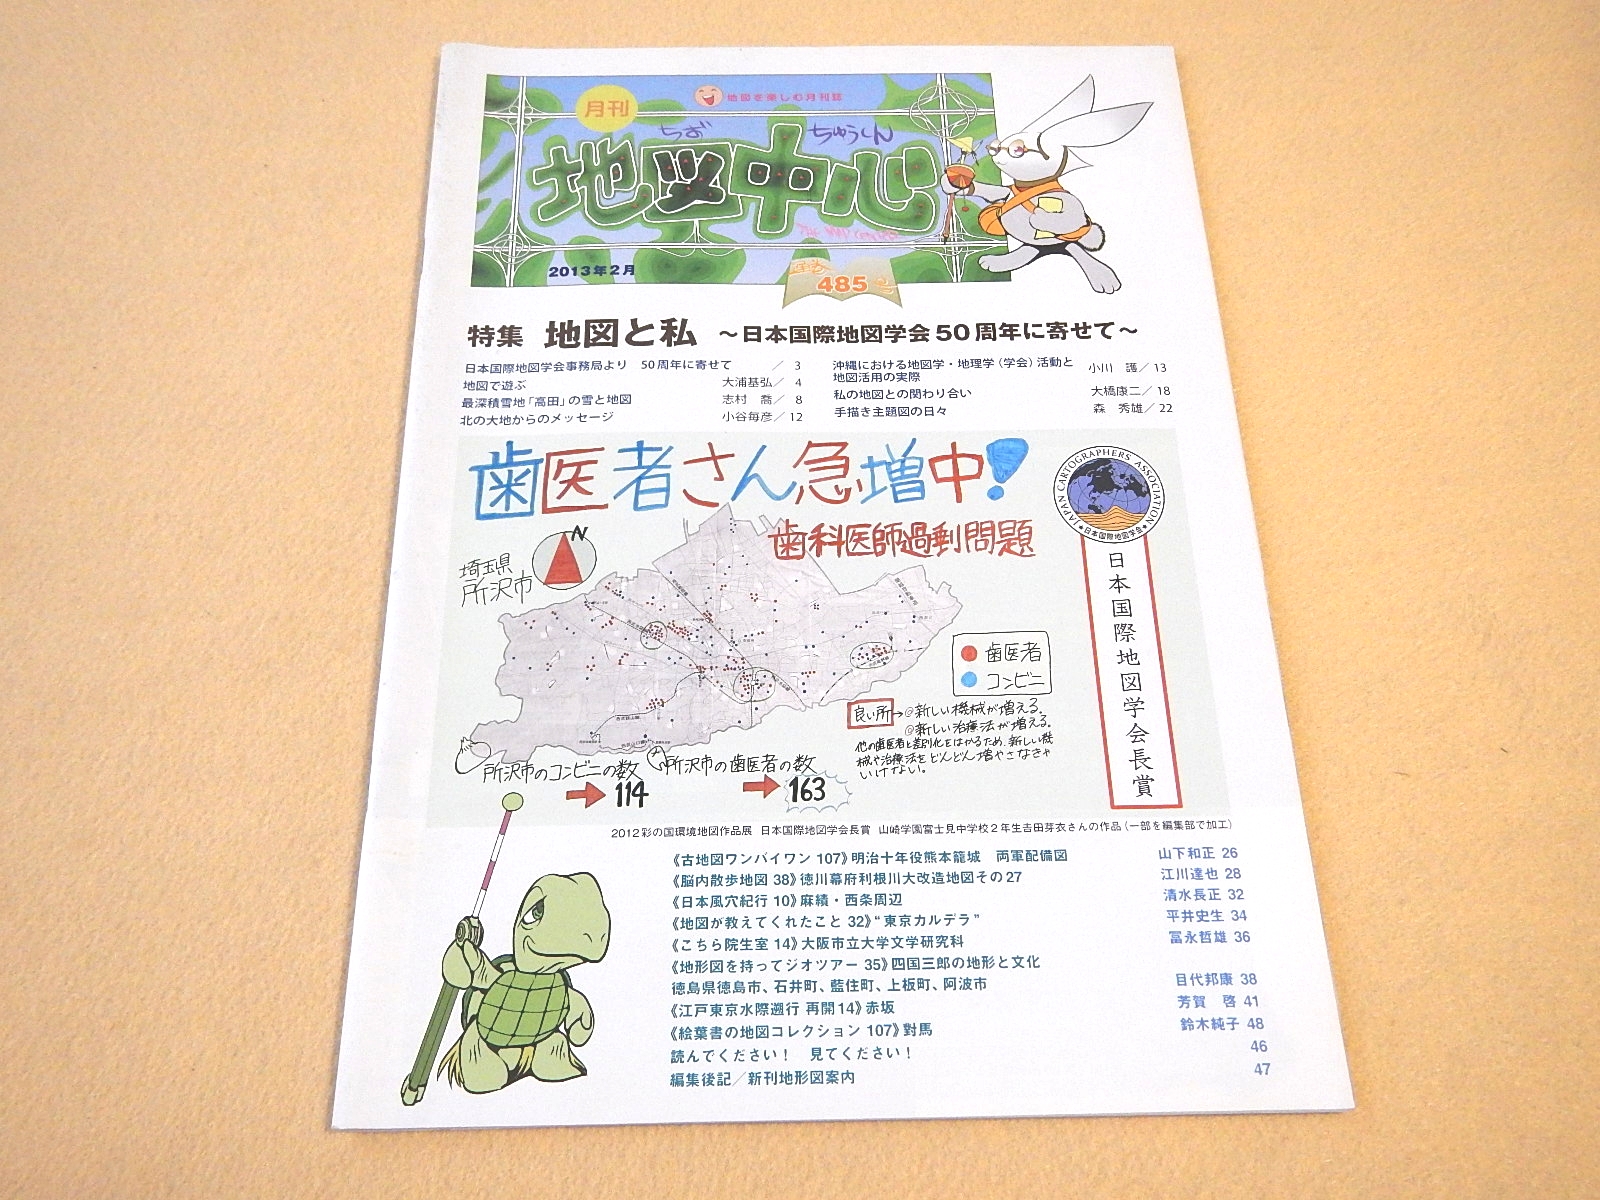 月刊
地図を楽しむ月刊誌
ちず ちゅうしん
地図中心
THE MAP CENTER
2013年2月
通巻
485号
特集 地図と私 ～日本国際地図学会50周年に寄せて～
日本国際地図学会事務局より 50周年に寄せて ／ 3
地図で遊ぶ 大浦基弘／ 4
最深積雪地「高田」の雪と地図 志村 喬／ 8
北の大地からのメッセージ 小谷毎彦／ 12
沖縄における地図学・地理学（学会）活動と
地図活用の実際 小川 護／ 13
私の地図との関わり合い 大橋康二／ 18
手描き主題図の日々 森 秀雄／ 22
歯医者さん急増中!
歯科医師過剰問題
埼玉県
所沢市
N
JAPAN CARTOGRAPHERS ASSOCIATION
日本国際地図学会
日本国際地図学会長賞
歯医者
コンビニ
良い所→◎新しい機械が増える。
◎新しい治療法が増える。
他の歯医者と差別化をはかるため、新しい機
械や治療法をどんどん増やさなきゃ
いけない。
所沢市のコンビニの数
→114
所沢市の歯医者の数
→163
2012彩の国環境地図作品展 日本国際地図学会長賞 山崎学園富士見中学校2年生吉田芽衣さんの作品（一部を編集部で加工）
《古地図ワンバイワン 107》明治十年役熊本籠城 両軍配備図 山下和正 26
《脳内散歩地図 38》徳川幕府利根川大改造地図その27 江川達也 28
《日本風穴紀行 10》麻績・西条周辺 清水長正 32
《地図が教えてくれたこと 32》“東京カルデラ” 平井史生 34
《こちら院生室 14》大阪市立大学文学研究科 冨永哲雄 36
《地形図を持ってジオツアー 35》四国三郎の地形と文化
徳島県徳島市、石井町、藍住町、上板町、阿波市 目代邦康 38
《江戸東京水際遡行 再開14》赤坂 芳賀 啓 41
《絵葉書の地図コレクション 107》對馬 鈴木純子 48
読んでください！ 見てください！ 46
編集後記／新刊地形図案内 47